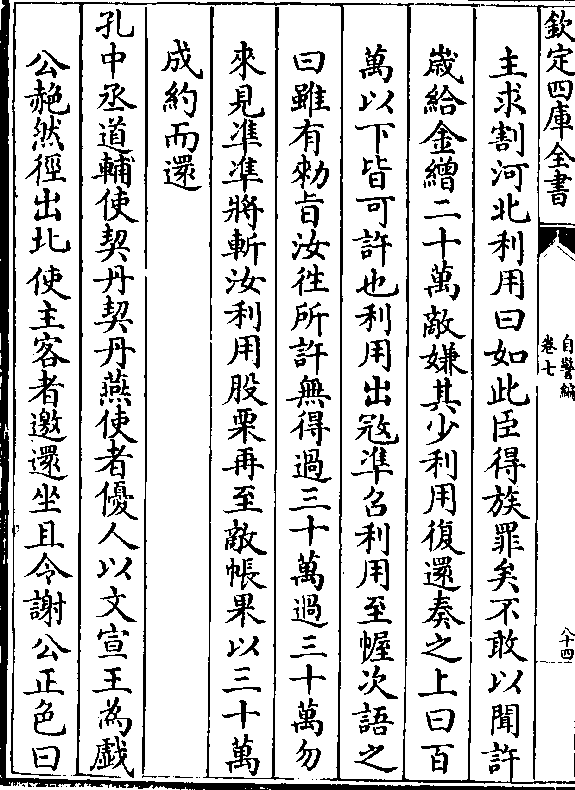 欽定四庫全書
自警編
卷七
八十四
主求割河北利用曰如此臣得族罪矣不敢以聞許
歲給金繒二十萬敵嫌其少利用復還奏之上曰百
萬以下皆可許也利用出冦凖召利用至幄次語之
曰雖有勅旨汝徃所許無得過三十萬過三十萬勿
來見凖凖將斬汝利用股栗再至敵帳果以三十萬
成約而還
孔中丞道輔使契丹契丹燕使者優人以文宣王為戲
公赩然徑出北使主客者邀還坐且令謝公正色曰